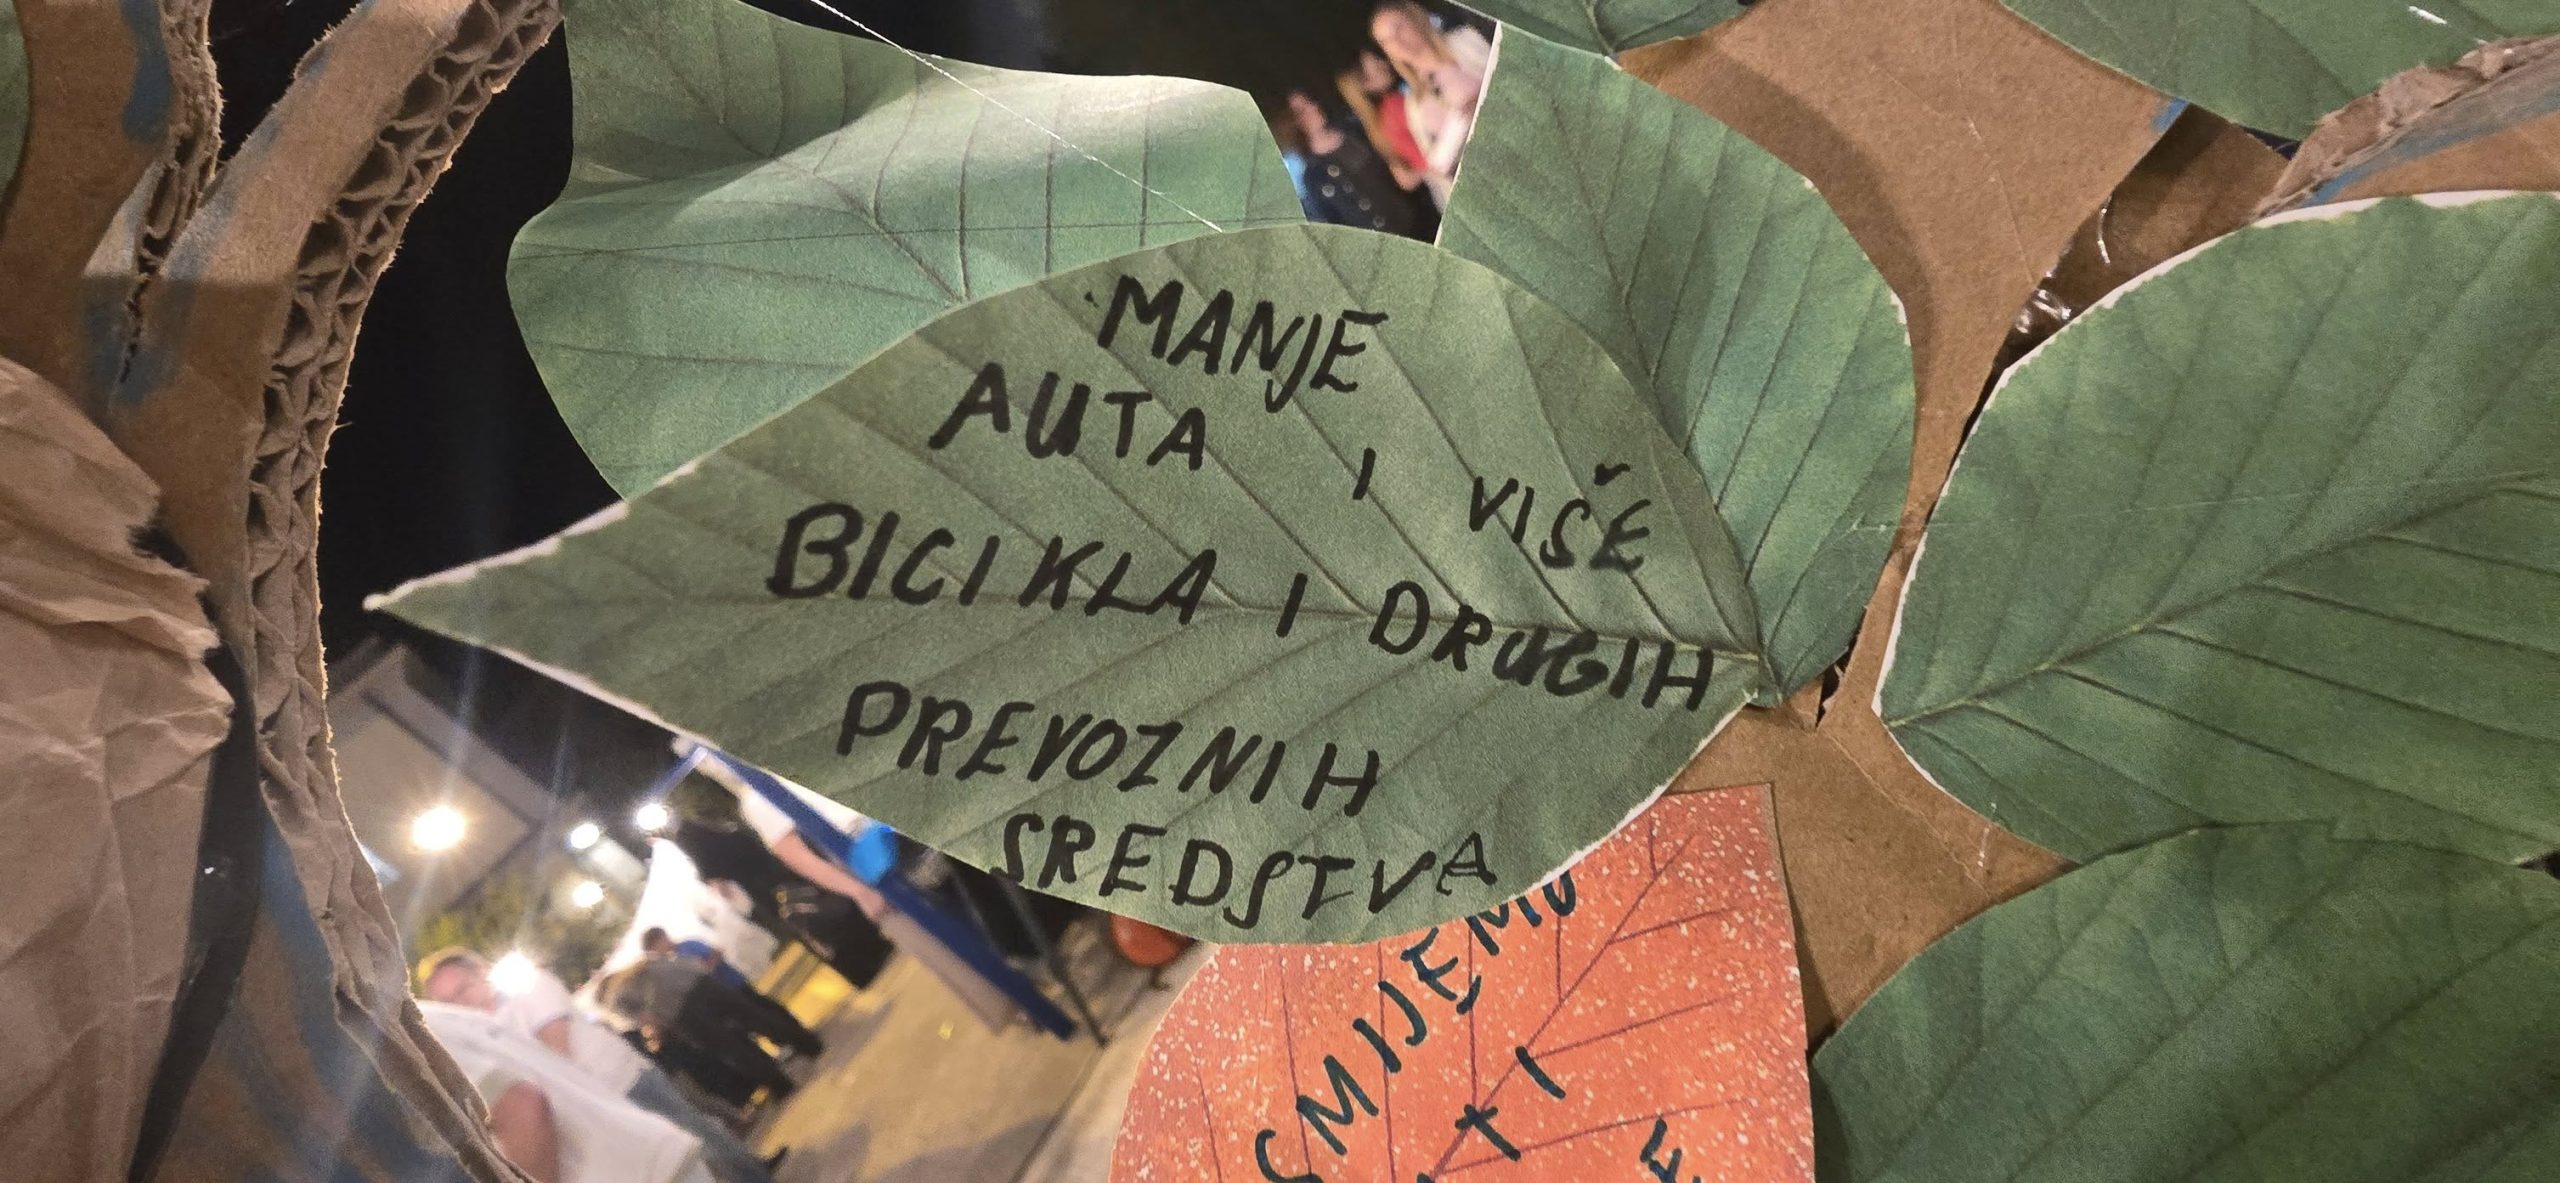 MANJE
AUTA I VIŠE
BICIKLA I DRUGIH
PREVOZNIH
SREDSTVA
SMIJEMO